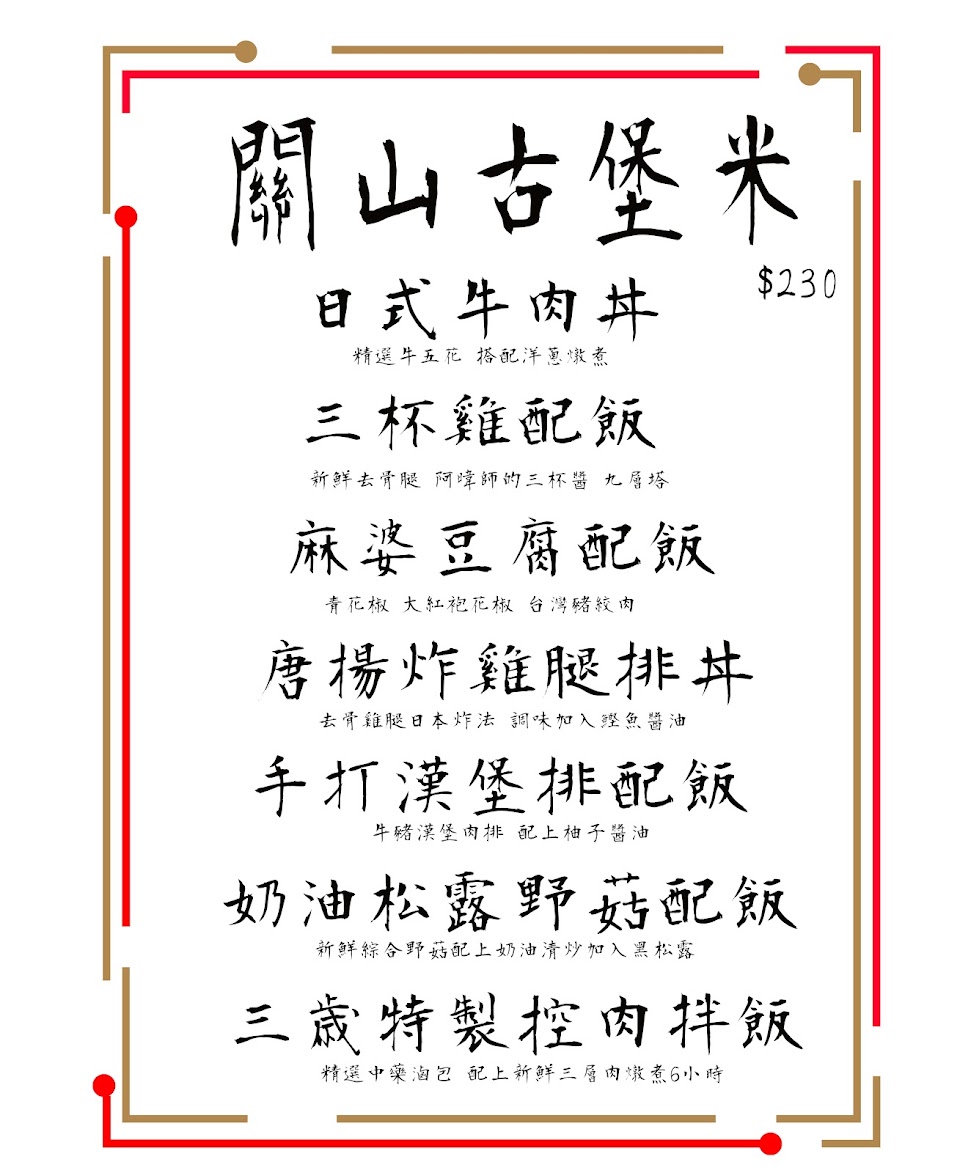 關山古堡米
$230
日式牛肉丼
精選牛五花 搭配洋蔥燉煮
三杯雞配飯
新鮮去骨腿 阿暐師的三杯醬 九層塔
麻婆豆腐配飯
青花椒 大紅袍花椒 台灣豬絞肉
唐揚炸雞腿排丼
去骨雞腿日本炸法 調味加入鰹魚醬油
手打漢堡排配飯
牛豬漢堡肉排 配上柚子醬油
奶油松露野菇配飯
新鮮綜合野菇配上奶油清炒加入黑松露
三歲特製控肉拌飯
精選中藥滷包 配上新鮮三層肉燉煮6小時